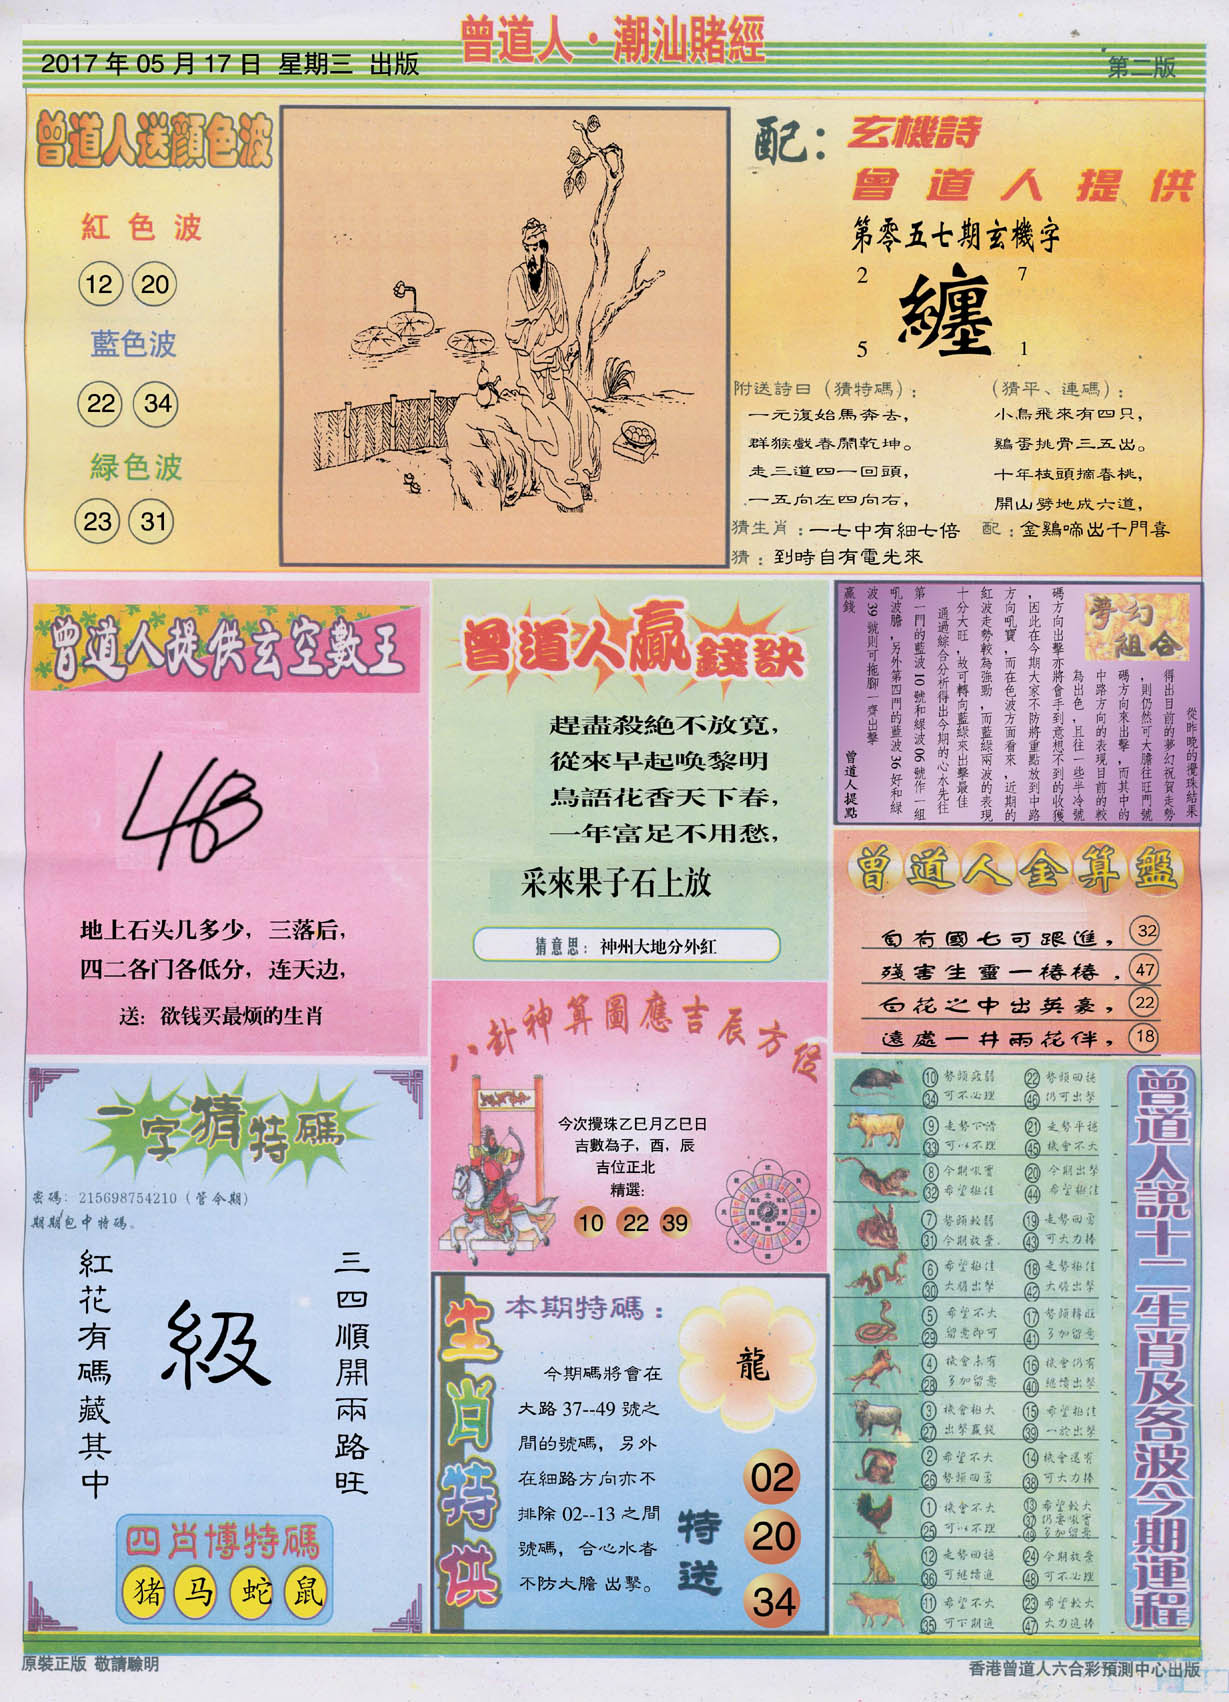 曾道人·潮汕賭經
2017年05月17日 星期三 出版
第二版
曾道人送顏色波
紅色波
12 20
藍色波
22 34
綠色波
23 31
配：玄機詩
曾道人提供
第零五七期玄機字
2 7
纏
5 1
附送詩曰（猜特碼）：
一元復始馬奔去，
群猴戲春鬧乾坤。
走三道四一回頭，
一五向左四向右，
（猜平、連碼）：
小鳥飛來有四只，
鷄蛋挑骨三五出。
十年枝頭摘春桃，
開山劈地成六道，
猜生肖：一七中有細七倍 配：金鷄啼出千門喜
猜：到時自有電光來
曾道人提供玄空數王
地上石头几多少，三落后，
四二各门各低分，连天边，
送：欲钱买最烦的生肖
曾道人贏錢訣
趕盡殺絶不放寬，
從來早起喚黎明
鳥語花香天下春，
一年富足不用愁，
采來果子石上放
猜意思：神州大地分外紅
夢幻
組合
從昨晚的攪珠結果
得出目前的夢幻祝賀走勢
，則仍然可大膽往旺門號
碼方向來出擊，而其中的
中路方向的表現目前的較
為出色，且往一些半冷號
碼方向出擊亦將會手到意想不到的收獲
，因此在今期大家不防將重點放到中路
方向吼寶，而在色波方面看來，近期的
紅波走勢較為強勁，而藍綠兩波的表現
十分大旺，故可轉向藍綠來出擊最佳
通過綜合分析得出今期的心水先往
第一門的藍波10號和綠波06號作一組
吼波膽，另外第四門的藍波36好和綠
波39號則可拖腳一齊出擊
贏錢
曾道人提點
曾道人金算盤
自有國七可跟進，32
殘害生靈一樁樁．47
白花之中出英豪，22
遠處一井兩花伴，18
八卦神算圖應吉辰方位
今次攪珠乙巳月乙巳日
吉數為子，酉，辰
吉位正北
精選：
10 22 39
一字猜特碼
密碼：215698754210（管今期）
期期包中特碼。
三四順開兩路旺
級
紅花有碼藏其中
四肖博特碼
猪 马 蛇 鼠
生肖特供
本期特碼：
龍
今期碼將會在
大路37--49號之
間的號碼，另外
在細路方向亦不
排除02--13之間
號碼，合心水者
不防大膽出擊。
特送
02
20
34
曾道人說十二生肖及各波今期運程
10 勢頭疲弱 22 勢頭回穩
34 可不必理 46 仍可出擊
9 走勢下滑 21 走勢平穩
33 可以不理 45 機會不大
8 今期吼實 20 今期出擊
32 希望極佳 44 希望極佳
7 勢頭較弱 19 走勢回勇
31 今期放棄 43 可大力捧
6 希望極佳 18 走勢極佳
30 大膽出擊 42 大膽出擊
5 希望不大 17 勢頭轉旺
29 留意即可 41 多加留意
4 機會未有 16 機會仍有
28 多加留意 40 繼續出擊
3 機會極大 15 希望極佳
27 出擊贏錢 39 一於出擊
2 希望不大 14 機會還有
26 勢頭回勇 38 可大力捧
1 機會不大 13 希望較大
37 仍要吼實
25 可以不理 49 多加留意
12 走勢回穩 24 今期放棄
36 可繼續追 48 可不必理
11 希望不大 23 希望較大
35 可下期追 47 大力追捧
原裝正版 敬請驗明
香港曾道人六合彩預測中心出版